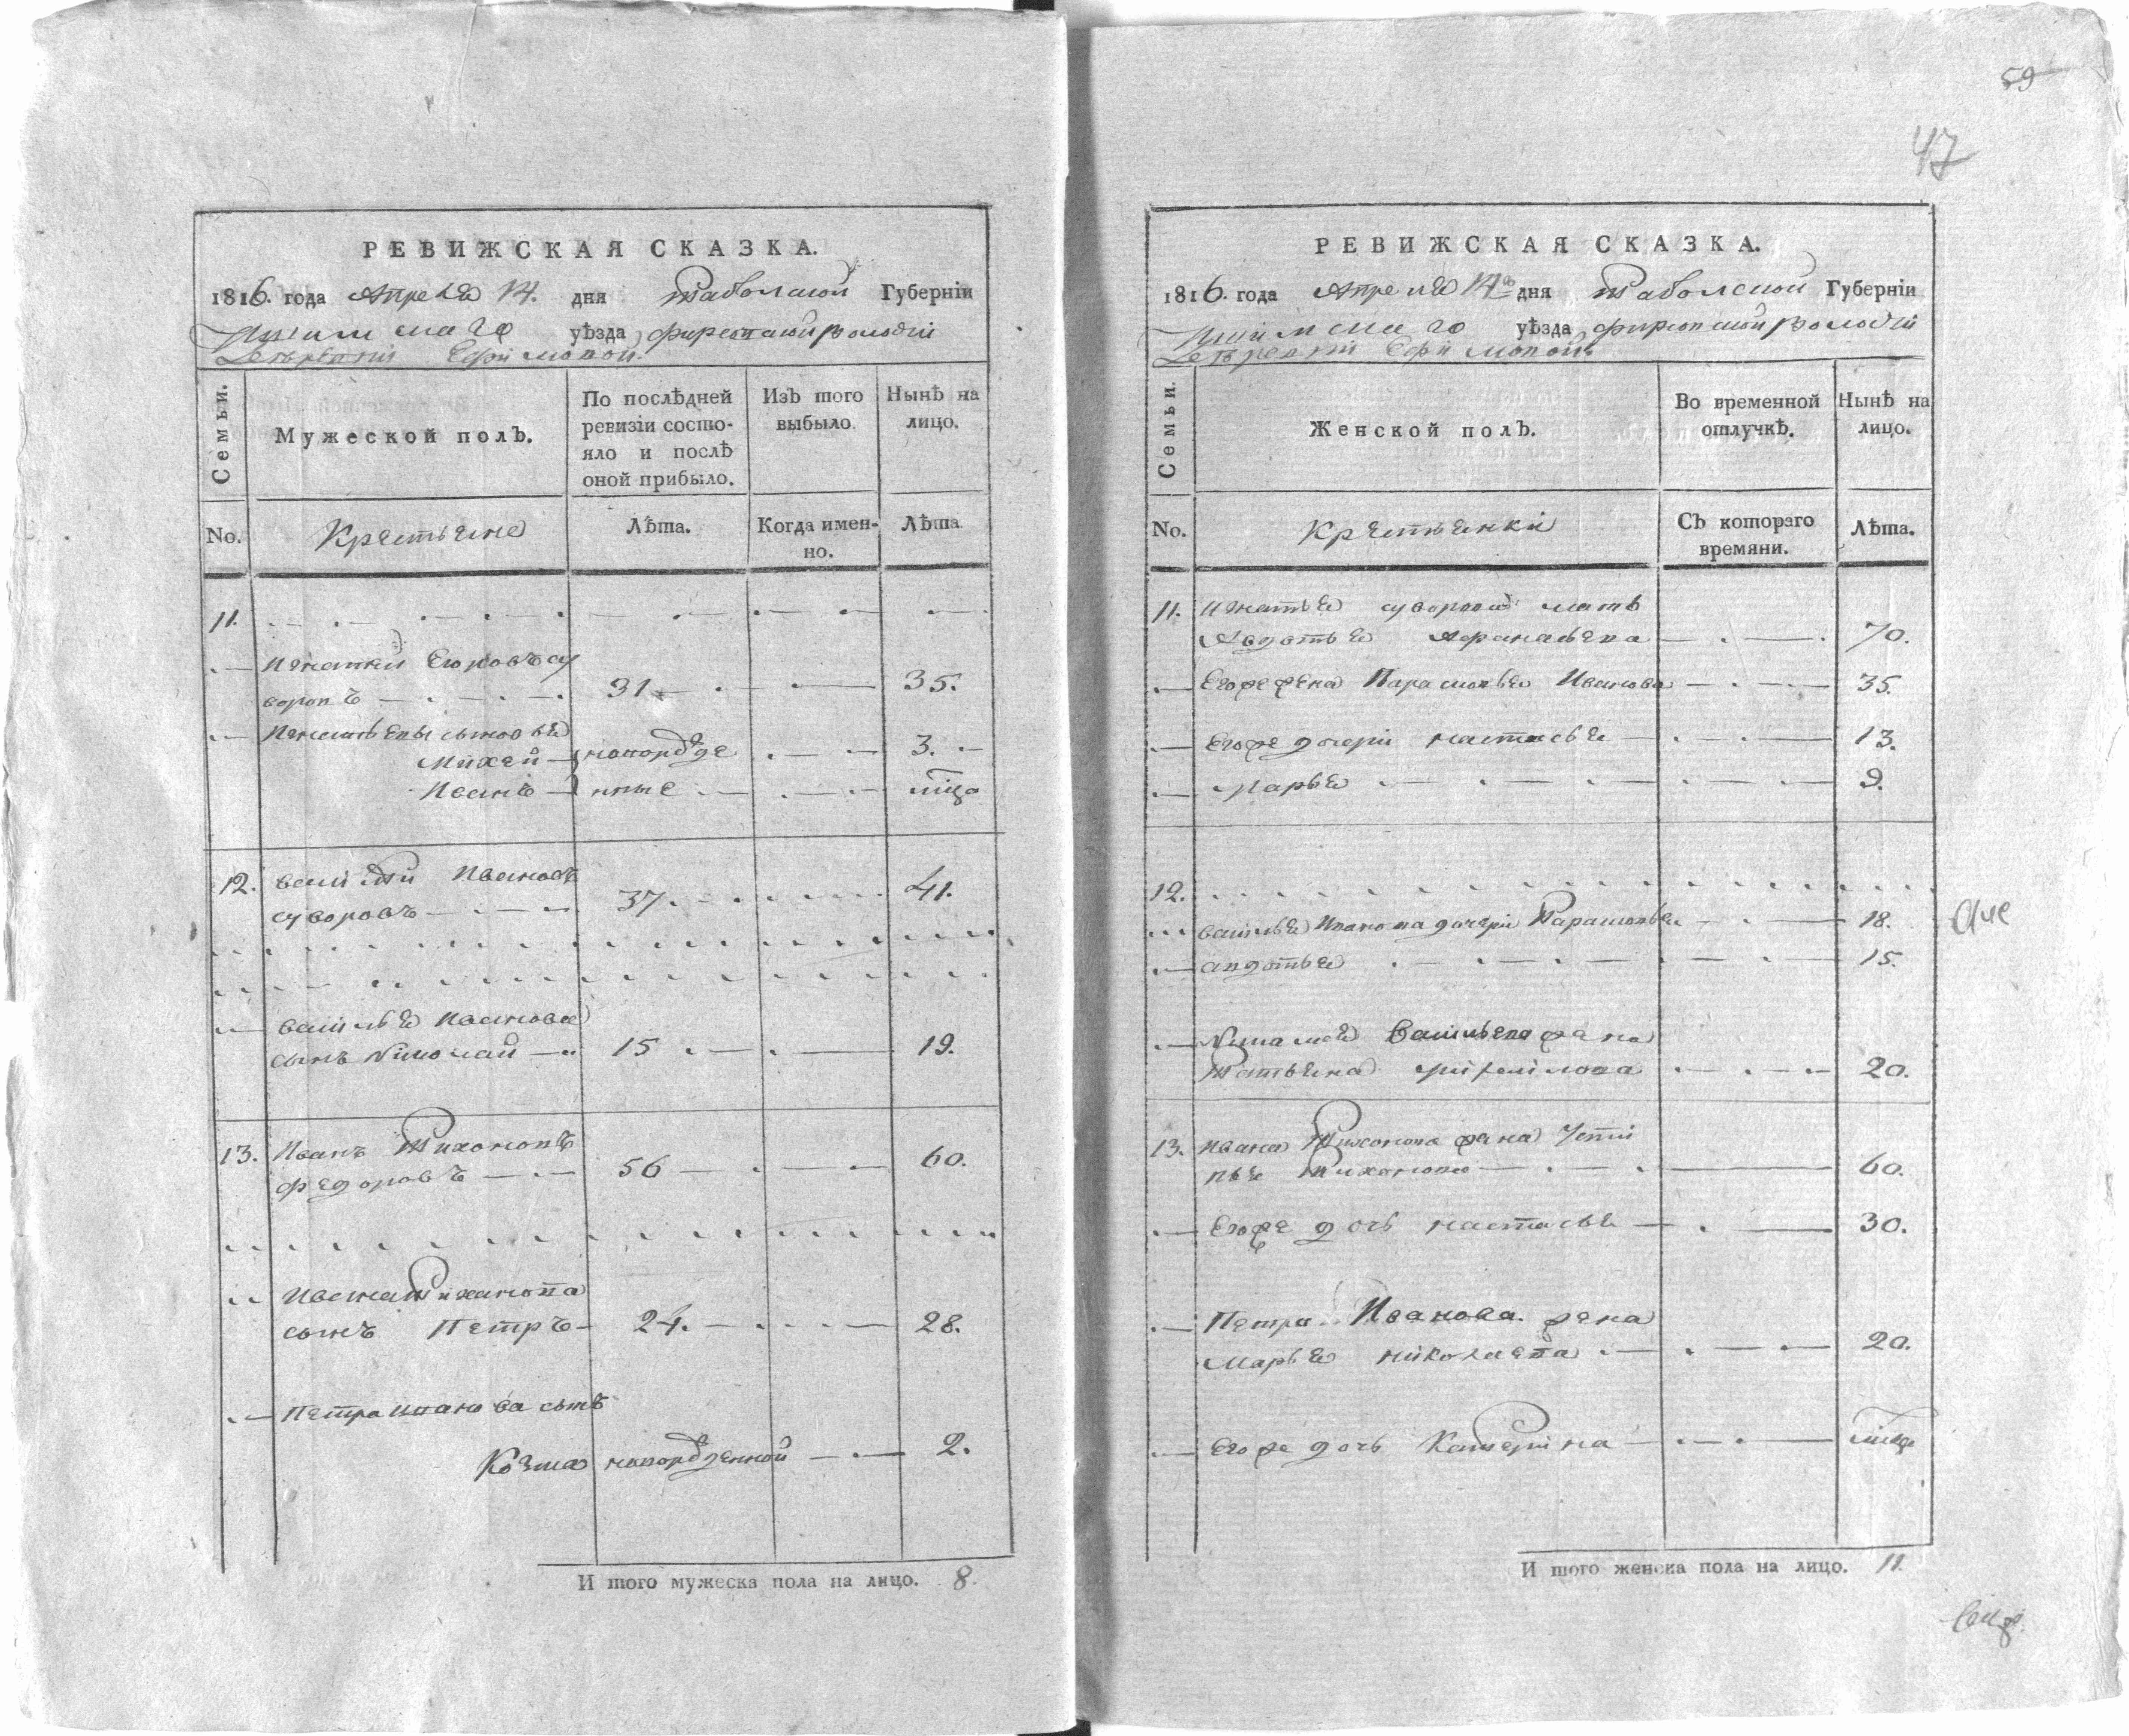 РЕВИЖСКАЯ СКАЗКА.
1816. года Апреля 14. дня таболской Губерніи
Ишимскаго уѣзда фирсовской волости
Деревни Ефимовой
Семьи.
Мужеской полъ.
По послѣдней ревизіи состояло и послѣ оной прибыло.
Изъ того выбыло.
Нынѣ на лицо.
No.
Крестьяне
Лѣта.
Когда именно.
Лѣта.
11.
Игнатей суворовъ 31 35.
Игнатьевы сыновья
Михей новорожде 3.
Иванъ нные
12. василей Ивановъ
суворовъ 37 41.
василья Иванова
сынъ Николай 15 19.
13. Иванъ Тихоновъ
федоровъ 56 60.
Ивана Тихонова
сынъ Петръ 24. 28.
Петра Иванова сынъ
Козма новорожденной 2.
И того мужеска пола на лицо. 8.
59
47
РЕВИЖСКАЯ СКАЗКА.
1816. года Апреля 14 дня таболской Губерніи
Ишимскаго уѣзда фирсовской волости
Деревни Ефимовой
Семьи.
Женской полъ.
Во временной отлучкѣ.
Нынѣ на лицо.
No.
Крестьянки
Съ котораго времяни.
Лѣта.
11. Игнатья суворова мать
Авдотья Афанасьева 70.
Егоже жена Парасковья Иванова 35.
Егоже дочери настасья 13.
Марья 9.
12.
василья Иванова дочери Парасковья 18.
авдотья 15.
Николая Васильева жена
Татьяна 20.
13. Ивана Тихонова жена Усти
нья Тихонова 60.
Егоже дочь настасья 30.
Петра Иванова жена
Марья николаева 20.
Егоже дочь Катерина
И того женска пола на лицо. 11.